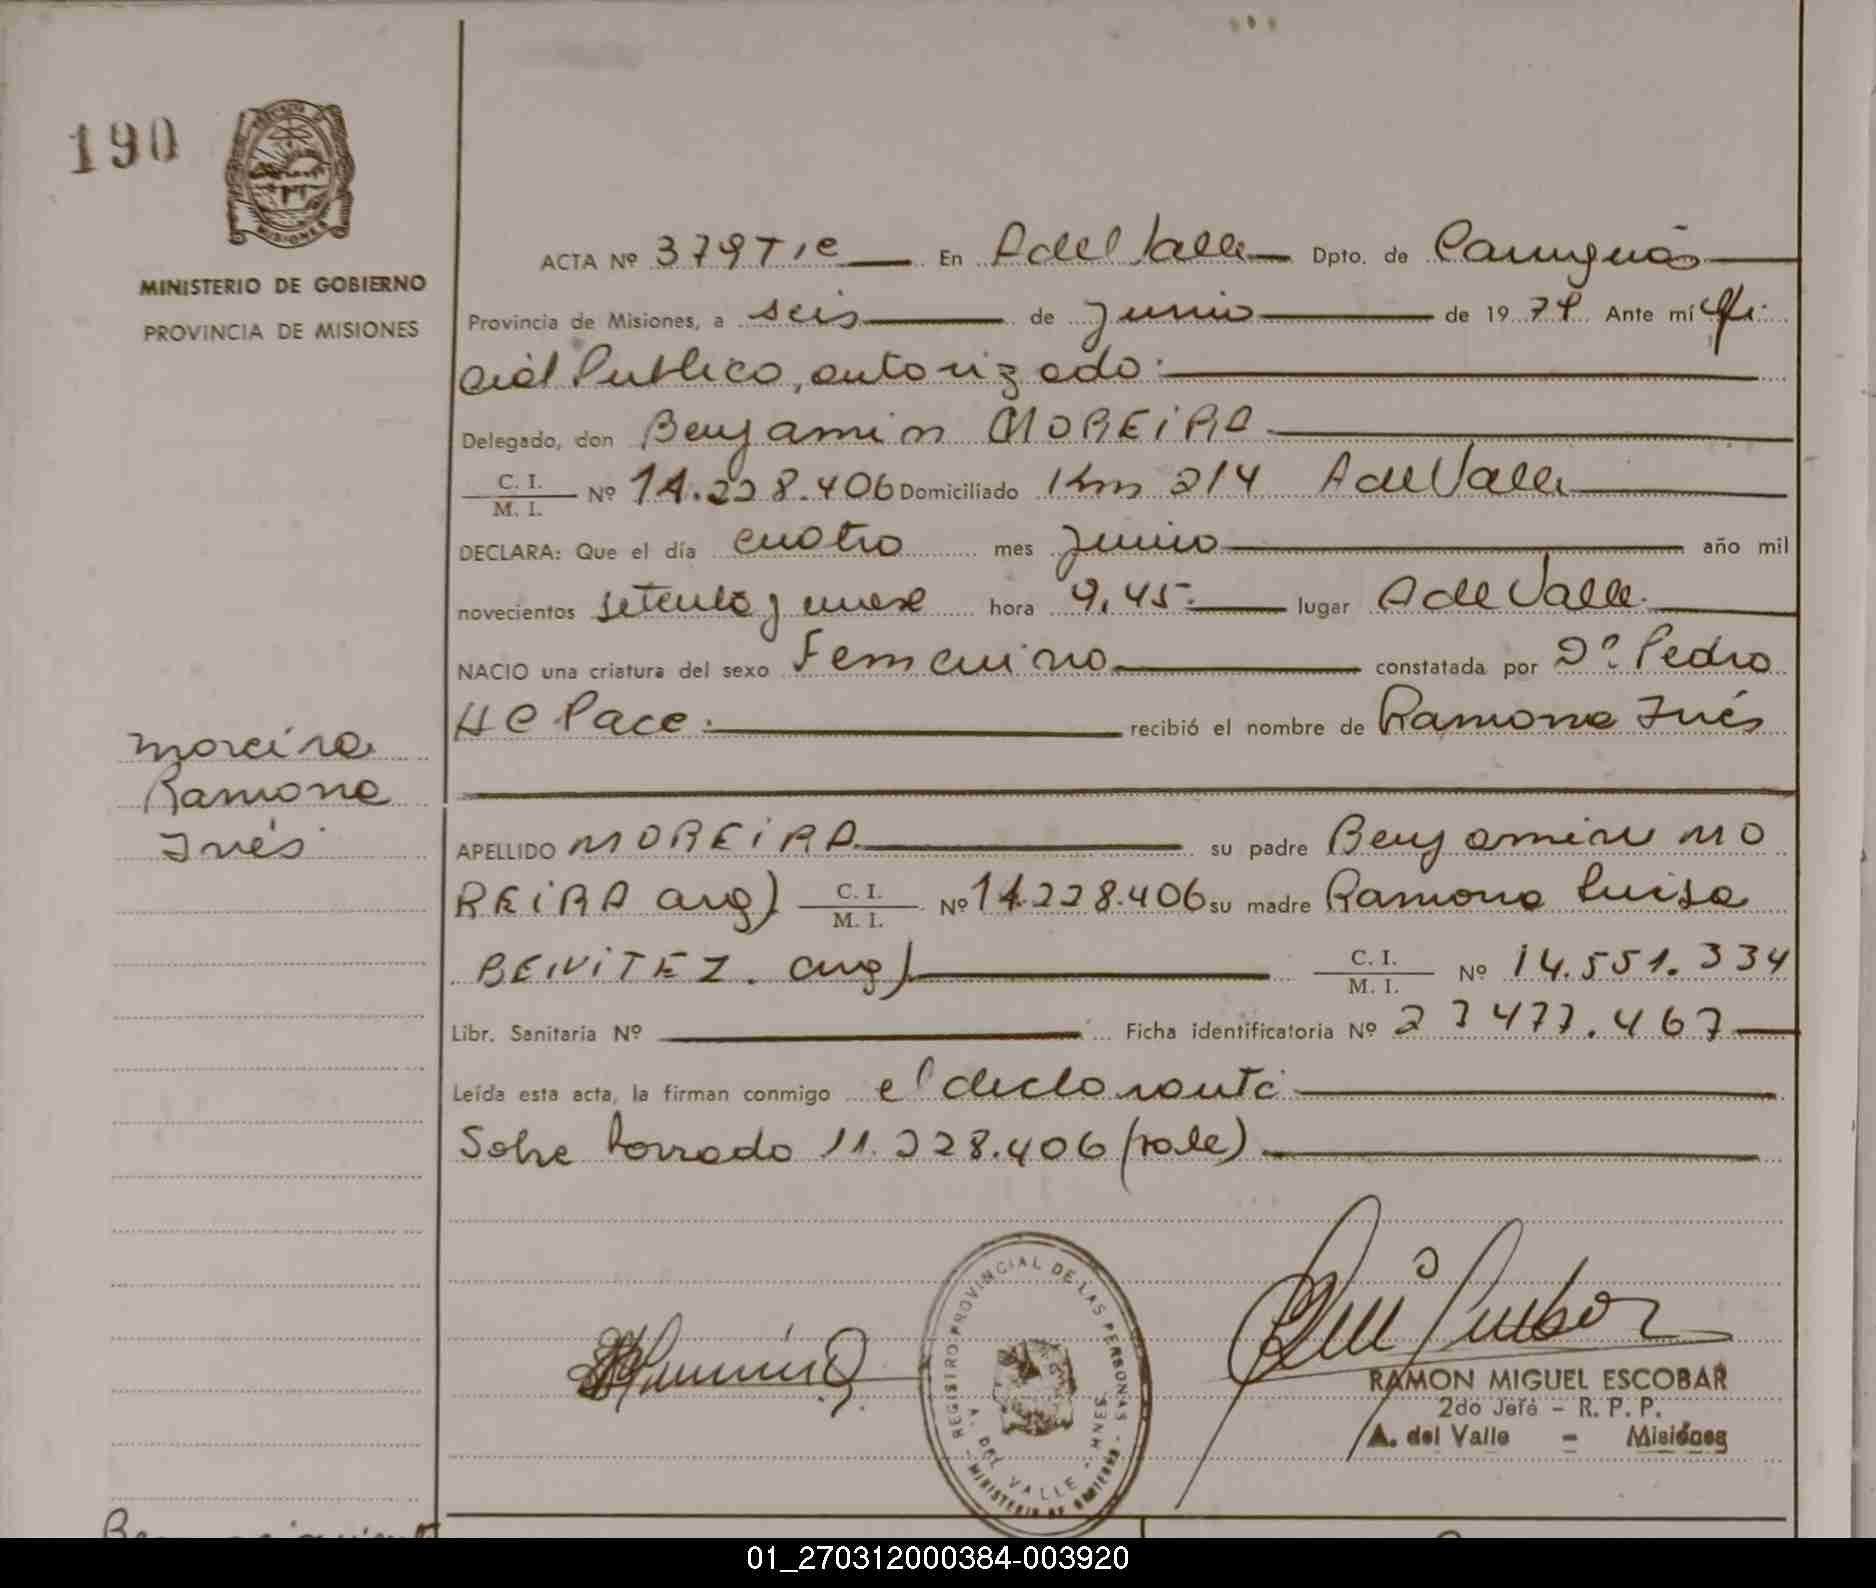 190
MISIONES
MINISTERIO DE GOBIERNO
PROVINCIA DE MISIONES
ACTA Nº 379 T 1º En A del Valle Dpto. de Cainguás
Provincia de Misiones, a seis de junio de 1979. Ante mí Ofi-
cial Publico, autorizado.
Delegado, don Benjamin MOREiRA
C. I. / M. I. Nº 14.228.406 Domiciliado Km 214 A del Valle
DECLARA: Que el día cuatro mes junio año mil
novecientos setenta y nueve hora 9,45 lugar A del Valle.
NACIO una criatura del sexo Femenino constatada por Dº Pedro
H C Pace. recibió el nombre de Ramona Inés
moreira
Ramona
Inés
APELLIDO MOREiRA su padre Benjamin MO
REiRA arg) C. I. / M. I. Nº 14.228.406 su madre Ramona Luisa
BENiTEZ. arg) C. I. / M. I. Nº 14.551.334
Libr. Sanitaria Nº Ficha identificatoria Nº 27477.467
Leída esta acta, la firman conmigo el declarante
Sobre borrado 11.228.406 (vale)
REGISTRO PROVINCIAL DE LAS PERSONAS
A. DEL VALLE - MNES.
MINISTERIO DE GOBIERNO
RAMON MIGUEL ESCOBAR
2do Jefe - R. P. P.
A. del Valle - Misiones
01_270312000384-003920